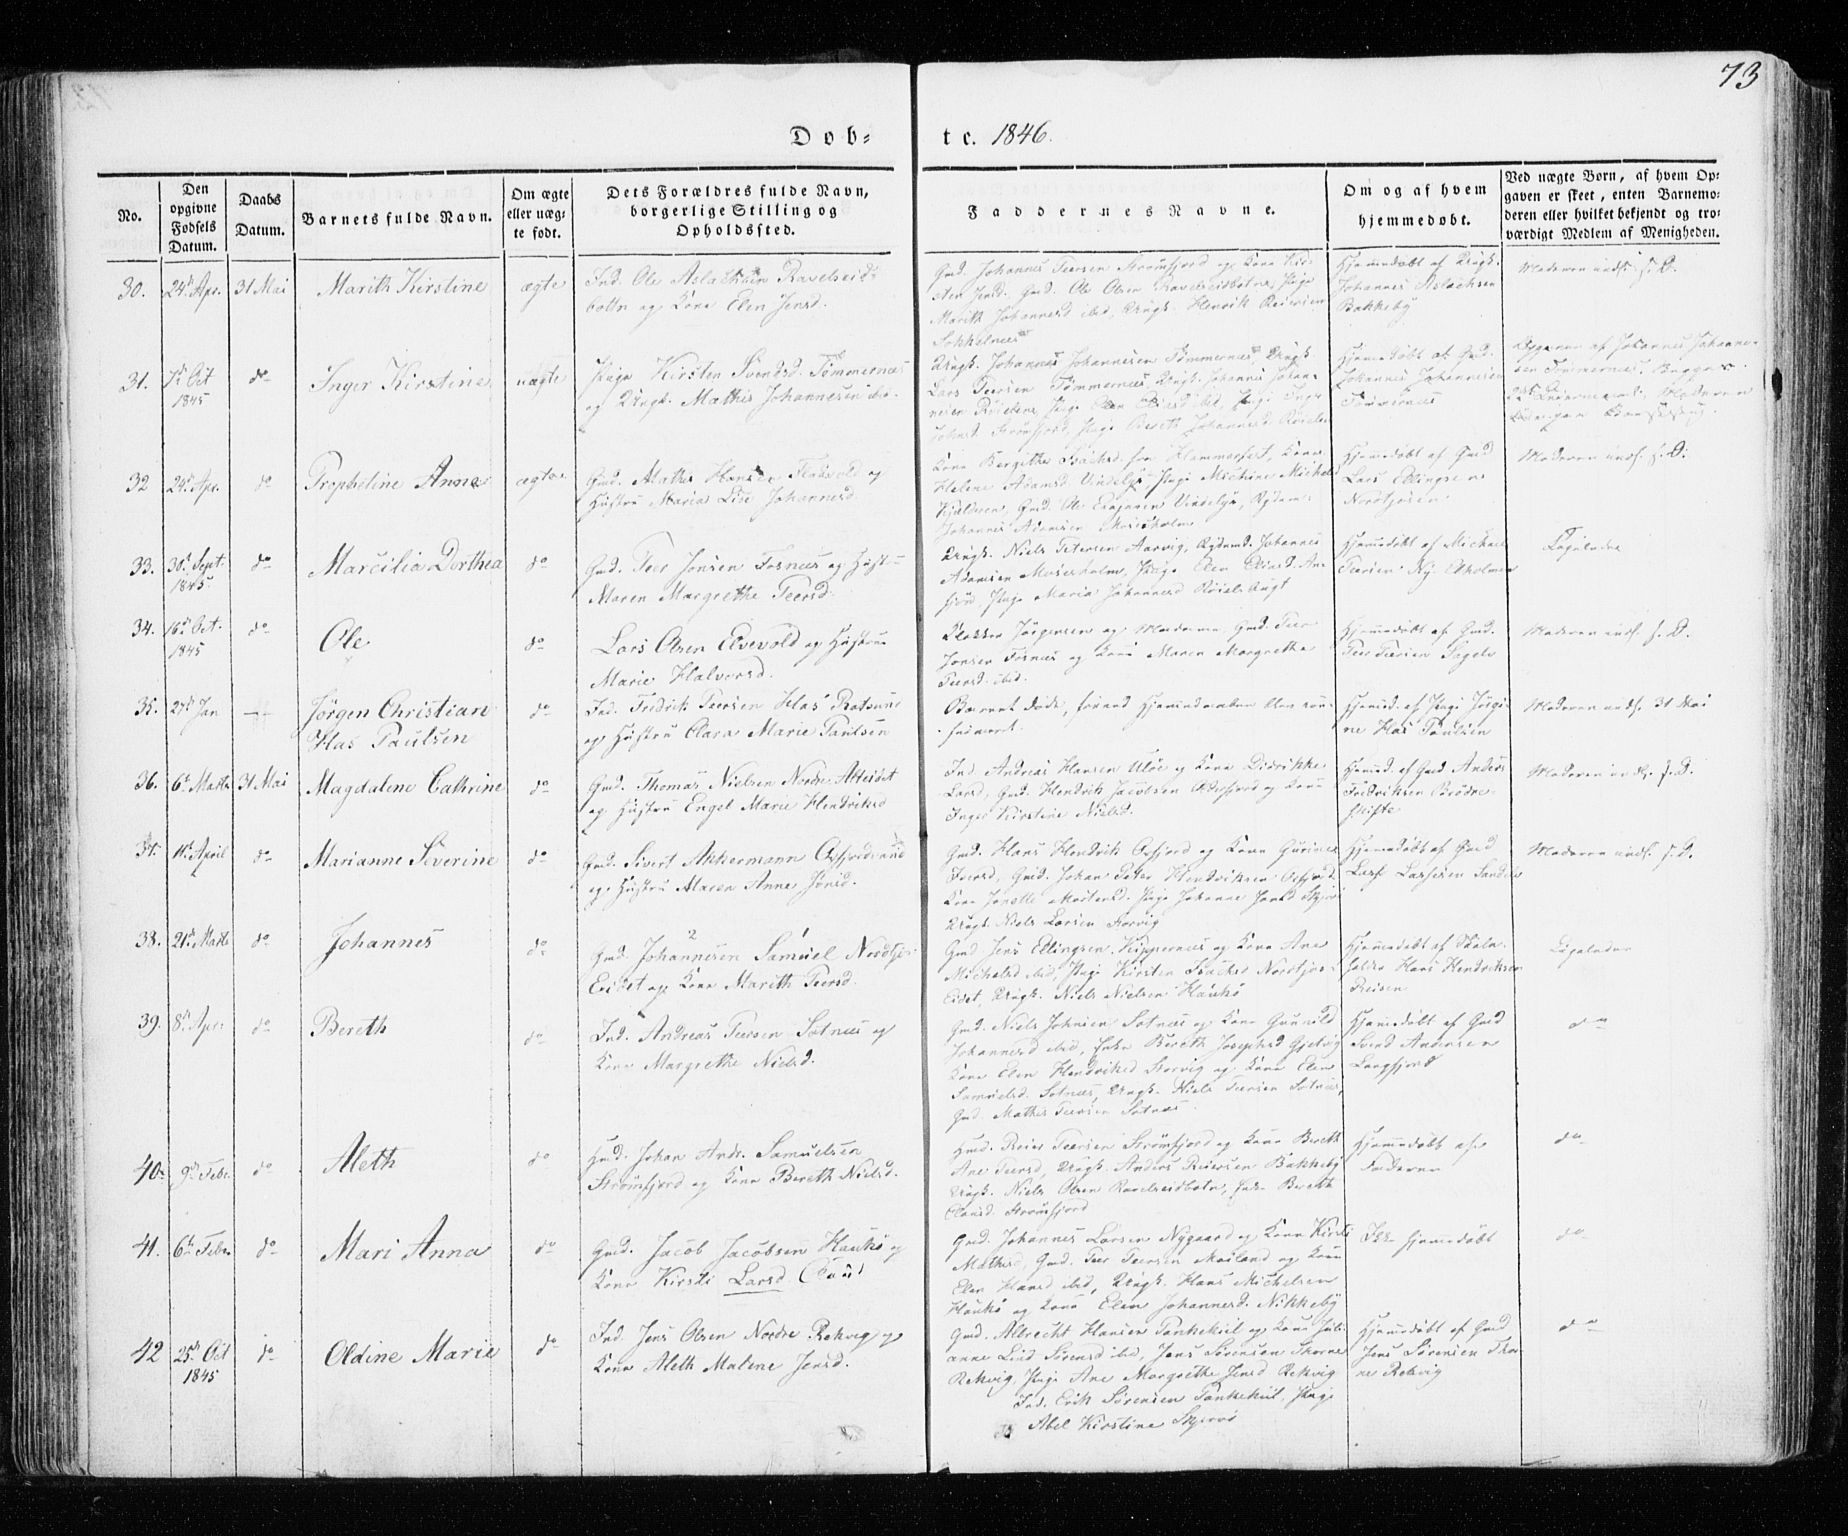 73
Døb- te. 1846.
No.
Den opgivne Fødsels Datum.
Daabs Datum.
Barnets fulde Navn.
Om ægte eller uæg- te født.
Dets Forældres fulde Navn, borgerlige Stilling og Opholdssted.
Faddernes Navne.
Om og af hvem hjemmedøbt.
Ved uægte Børn, af hvem Op- gaven er skeet, enten Barnemo- deren eller hvilket bekjendt og tro- værdigt Medlem af Menigheden.
30. 24de Apr. 31 Mai Marith Kirstine ægte
Ind. Ole Aslachsen Ravelseid-
botn og Kone Elen Jensd.
Gmd. Johannes Peersen Strømfjord og Kone Kir-
sten Jensd. Gmd. Ole Olsen Ravelseidbotn, Pige
Marith Johannesd ibid, Ungk. Henrik Reiersen
Sokkelnæs
Hjemmedøbt af Ungk.
Johannes Aslachsen
Bakkeby
Moderen indf. s. D.
31. 7de Oct 1845 do Inger Kirstine uægte
Pige Kirsten Svendsd. Tømmernæs
og Ungk. Mathis Johannesen ibid.
Ungk. Johannes Johannesen Tømmernæs, Ungk.
Lars Peersen Tømmernæs, Ungk. Johannes Johan-
nesen
Strømfjord, Pige Bereth Johannesd.
Hjemmedøbt af Gmd.
Johannes Johannesen
Tømmernæs
Opgaven af Johannes Johanne-
sen Tømmernæs.
32 24de Apr. do Propheline Anna ægte
Gmd. Mathis Hansen Flatvold og
Hustru Maria Lise Johannesd.
Kone Bergithe Isachsd. fra Hammerfest, Kone
Helene Adamsd Vindelys, Pige Michine Michels
Gmd. Ole Vindelys,
Johannes Adamsen Maursholm
Hjemmedøbt af Gmd
Lars Edlingsen
Nordtjosen
Moderen indf. s. D.
33. 30de Sept. 1845. do Marcilia Dorthea do
Gmd. Peer Jonsen Fosnæs og Hustru
Maren Margrethe Peersd.
Ungk. Niels Petersen Aarvig, Johannes
Adamsen Maursholm, Pige Elen
Pige Maria Johannesd
Hjemmedøbt af Michael
Peersen Ny
Ligeledes
34. 16de Oct. 1845 do Ole do
Lars Olsen Elvevold og Hustru
Marie Halvorsd.
Klokker Jørgensen og Madame, Gmd. Peer
Jonsen Fosnæs og Kone Maren Margrethe
Peersd. ibid.
Hjemmedøbt af Gmd.
Peer Peersen
Moderen indf. s. D.
35. 27de Jan Jørgen Christian
Has Paulsen do
Ind. Fredrik Peersen Has Rotsund
og Hustru Clara Marie Paulsen
Barnet døde, førend Hjemmedaaben blev con-
firmeret.
Hjemmed. af Pige Jørgi-
ne Has Paulsen
Moderen indf. 31 Mai
36. 6te Marts 31 Mai Magdalene Cathrine do
Gmd. Thomas Nielsen Nordre Alteidet
og Hustru Engel Marie Hendriksd
Ind. Andreas Hansen Uløe og Kone Didrikke
Larsd, Gmd. Hendrik Jacobsen og Kone
Inger Kirstine Nielsd.
Hjemmed. af Gmd Anders
Fredriksen Brødre-
skifte
Moderen indf. s. D.
37. 11te April do Marianne Severine do
Gmd. Sivert Akkermann Oxfjordsund
og Hustru Maren Anne Jonsd.
Gmd. Hans Hendrik Oxfjord og Kone Gurine
Iversd, Gmd. Johan Peter Hendriksen Oxfjord.
Kone Jonette Mortensd. Pige Johanne Jonsd
Ungk. Niels Larsen Storvig
Hjemmedøbt af Gmd
Lasse Lassesen
Moderen indf. s. D.
38. 21de Marts do Johannes do
Gmd. Johannesen Samuel Nordtjos-
Eidet og Kone Marith Peersd.
Gmd Jens Edlingsen Kippernæs og Kone Ane
Michelsd ibid, Pige Kirsten Isachsd Nordtjos-
Eidet, Ungk. Niels Nielsen Haukø
Hjemmedøbt af Skole-
holder Hans Hendriksen
Reisen
Ligeledes
39. 8de Apr: do Bereth do
Ind. Andreas Peersen Sotnæs og
Kone Margrethe Nielsd.
Gmd. Niels Johnsen Sotnæs og Kone Gunnild
Johannesd ibid, Enke Bereth Josephsd
Kone Elen Hendriksd Storvig og Kone Elen
Samuelsd. Sotnæs, Ungk. Niels Peersen Sotnæs,
Gmd. Mathis Peersen Sotnæs.
Hjemmedøbt af Gmd
Svend Andersen
Langfjord
do
40. 9de Febr. do Aleth do
Gmd. Johan Andr. Samuelsen
Strømfjord og Kone Bereth Nielsd.
Gmd. Reier Peersen Strømfjord og Kone Bereth
Ane Peersd, Ungk. Anders Reiersen Bakkeby
Ungk. Niels Olsen Ravelseidbotn, Enke Bereth
Clausd. Strømfjord
Hjemmedøbt af
Faderen
do
41. 6te Febr. do Mari Anna do
Gmd. Jacob Jacobsen Haukø og
Kone Kirsti Larsd.
Gmd. Johannes Larsen Nygaard og Kone Kirsti
Mathisd, Gmd. Peer Peersen Meiland og Kone
Elen Hansd ibid, Ungk. Hans Michelsen
Haukø og Kone Elen Johannesd. Nikkeby
Ikke hjemmedøbt
do
42 25de Oct 1845 do Oldine Marie do
Ind. Jens Olsen Nordre Rekvig og
Kone Aleth Malene Jensd.
Gmd. Albrecht Hansen Tankekiil og Kone Juli-
anne Lind Sørensd ibid, Jens Sørensen Thorne
Rekvig, Pige Ane Margrethe Jensd Rekvig
Ind. Erik Sørensen Tankekiil, Pige
Abel Kirstine Skjervø
Hjemmedøbt af Gmd
Jens Sørensen Thor-
ne Rekvig
do